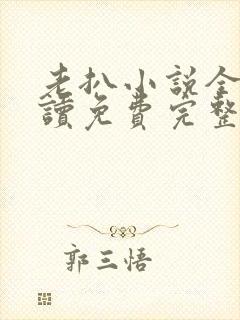 老扒小说全
讀免費完整
郭三悟